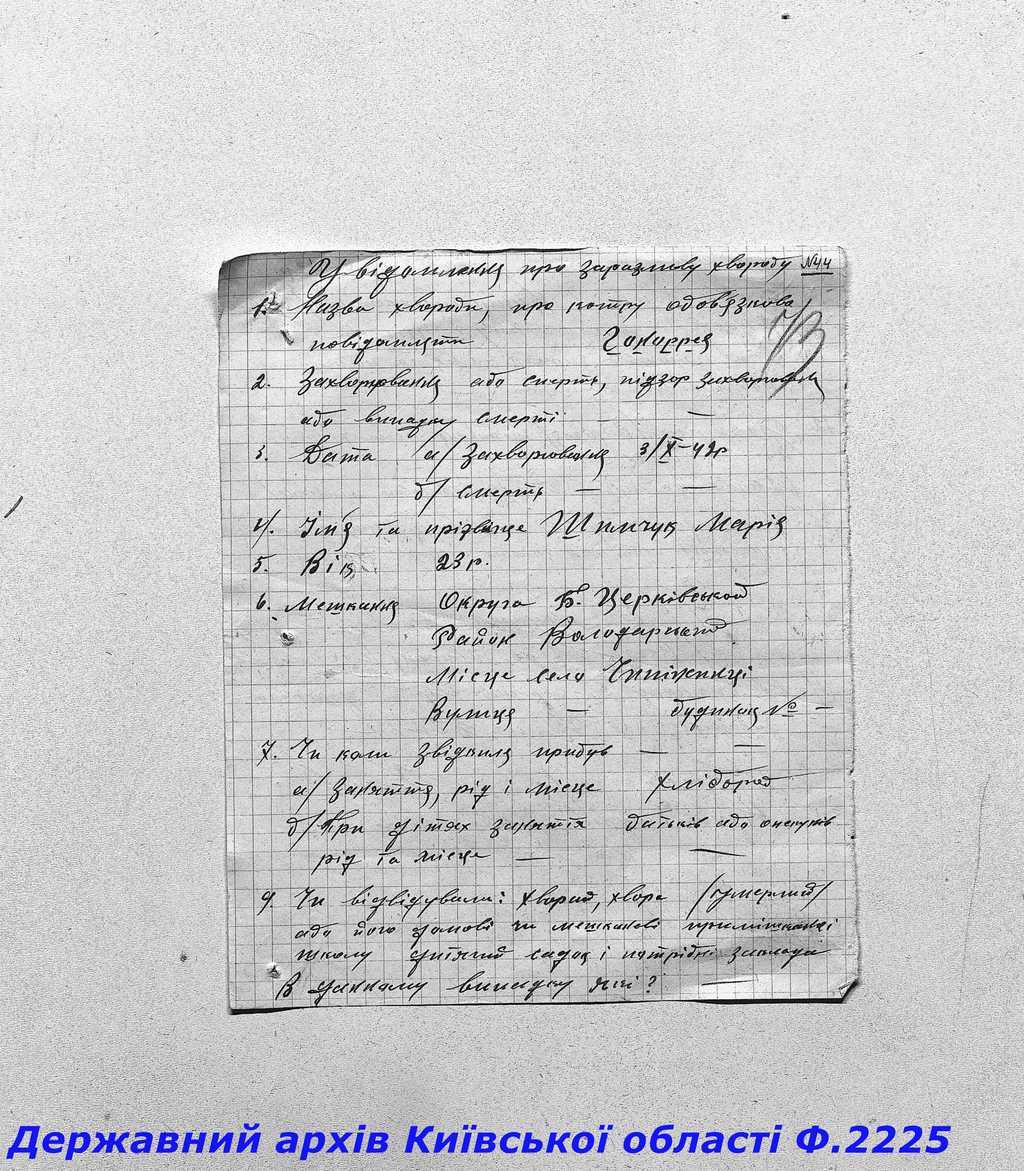 Увідомлення про заразливу хворобу №44
1. Назва хвороби, про котру обов'язково
повідомляти Ганоррея
2. Захворювання або смерть, підзор захворювання
або випадку смерті —
3. Дата а/ Захворювання 3/X-42р
б/ смерть — —
4. Ім'я та прізвище Шимчук Марія
5. Вік 23 р.
6. Мешкання Округа Б. Церківської
Район Володарський
Місце село
Вулиця — будинок № —
7. Чи коли звідкиля прибув — —
а/ Заняття, рід і місце Хлібороб
б/ При дітях заняття батьків або опекунів
рід та місце — —
9. Чи відвідували: хворий, хвора /умерлий/
або його домові чи мешканові
школу дитячий садок і заклади
В данному випадку які? —
Державний архів Київської області Ф.2225